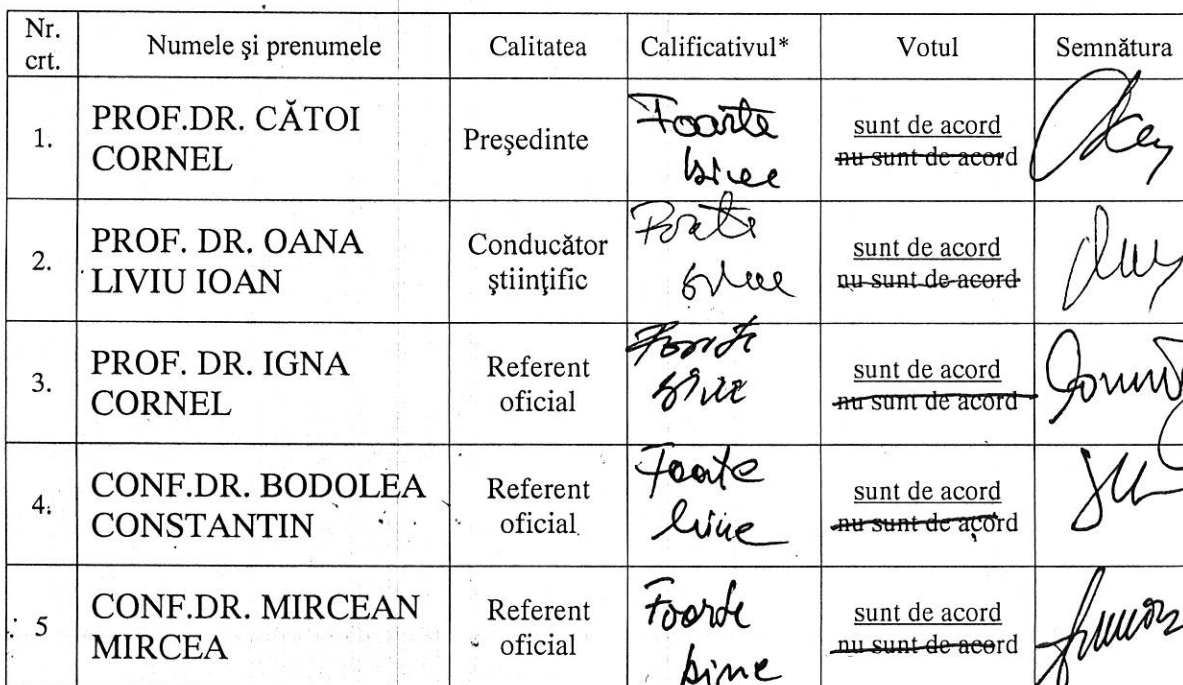 Nr. crt. Numele şi prenumele Calitatea Calificativul* Votul Semnătura
1. PROF.DR. CĂTOI CORNEL Preşedinte Foarte bine sunt de acord nu sunt de acord
2. PROF. DR. OANA LIVIU IOAN Conducător ştiinţific Foarte bine sunt de acord nu sunt de acord
3. PROF. DR. IGNA CORNEL Referent oficial Foarte bine sunt de acord nu sunt de acord
4. CONF.DR. BODOLEA CONSTANTIN Referent oficial Foarte bine sunt de acord nu sunt de acord
5 CONF.DR. MIRCEAN MIRCEA Referent oficial Foarte bine sunt de acord nu sunt de acord